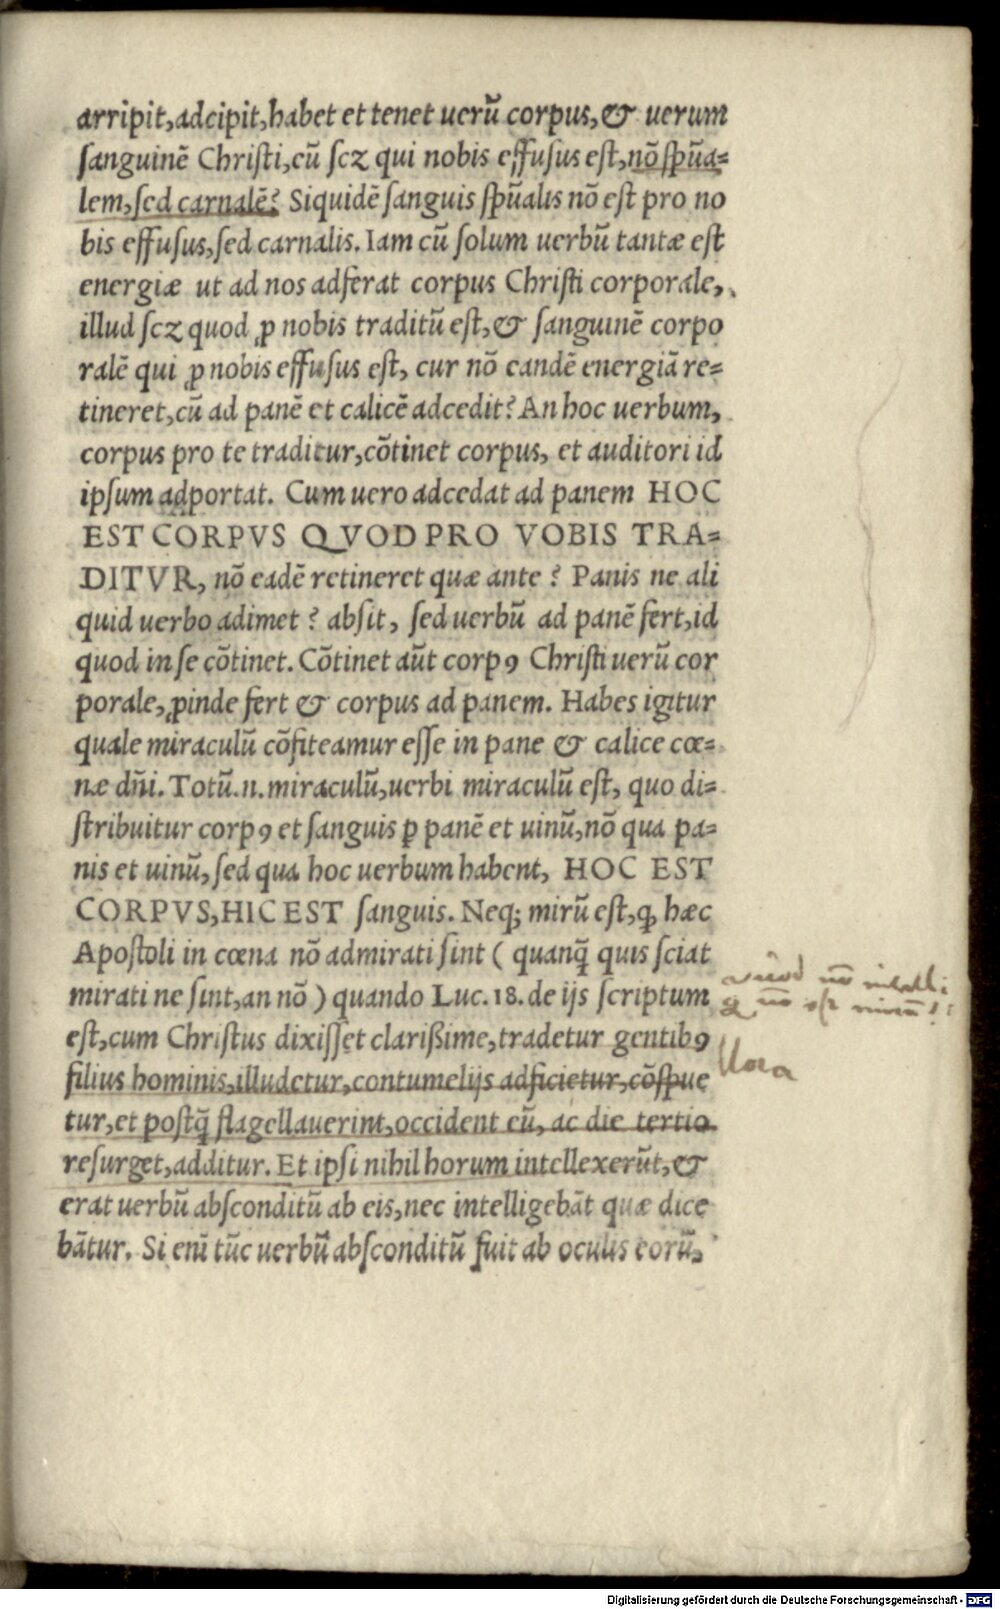 arripit,adcipit,habet et tenet uerū corpus,& uerum
ſanguinē Chriſti,cū ſcz qui nobis effuſus eſt,nō ſpūa=
lem,ſed carnalē? Siquidē ſanguis ſpūalis nō eſt pro no
bis effuſus,ſed carnalis. Iam cū ſolum uerbū tantæ eſt
energiæ ut ad nos adferat corpus Chriſti corporale,
illud ſcz quod ꝓ nobis traditū eſt,& ſanguinē corpo
ralē qui ꝓ nobis effuſus eſt, cur nō eandē energiā re=
tineret,cū ad panē et calicē adcedit? An hoc uerbum,
corpus pro te traditur,cōtinet corpus, et auditori id
ipſum adportat. Cum uero adcedat ad panem HOC
EST CORPVS QVOD PRO VOBIS TRA=
DITVR, nō eadē retineret quæ ante ? Panis ne ali
quid uerbo adimet ? abſit, ſed uerbū ad panē fert,id
quod in ſe cōtinet. Cōtinet aūt corpꝰ Chriſti uerū cor
porale,ꝓinde fert & corpus ad panem. Habes igitur
quale miraculū cōfiteamur eſſe in pane & calice cœ=
næ dn̄i. Totū.n.miraculū,uerbi miraculū eſt, quo di=
ſtribuitur corpꝰ et ſanguis ꝑ panē et uinū,nō qua pa=
nis et uinū,ſed qua hoc uerbum habent, HOC EST
CORPVS,HIC EST ſanguis. Neqꝫ mirū eſt,ꝙ hæc
Apoſtoli in cœna nō admirati ſint ( quanq̄ quis ſciat
mirati ne ſint,an nō ) quando Luc.18.de ijs ſcriptum
eſt,cum Chriſtus dixiſſet clarißime,tradetur gentibꝰ
filius hominis,illudetur,contumelijs adficietur,cōſpue
tur,et poſtq̄ flagellauerint,occident eū, ac die tertio
reſurget,additur. Et ipſi nihil horum intellexerūt,&
erat uerbū abſconditū ab eis,nec intelligebāt quæ dice
bātur. Si enī tūc uerbū abſconditū fuit ab oculis eorū,
Digitalisierung gefördert durch die Deutsche Forschungsgemeinschaft - DFG